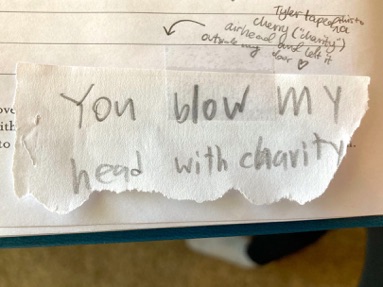 Tyler taped this to a
cherry ("charity")
airhead and left it
outside my door ♡
You blow MY
head with charity